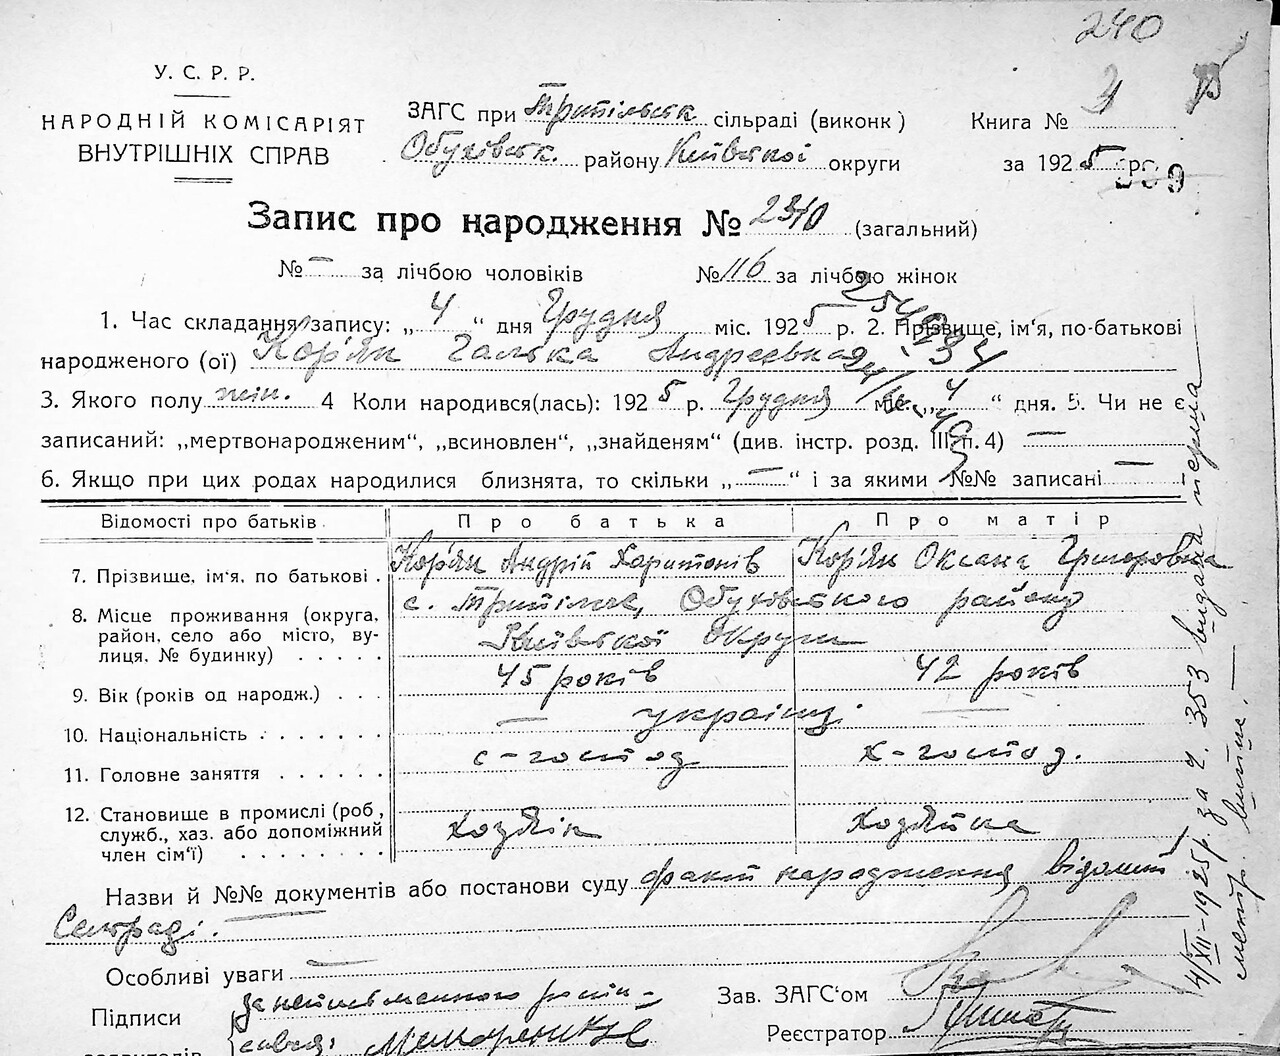 240
У. С. Р. Р.
НАРОДНІЙ КОМІСАРІЯТ
ВНУТРІШНІХ СПРАВ
ЗАГС при Трипільськ сільраді (виконк)
Обухівськ. району Київської округи
Книга № 3
за 1925 р.
Запис про народження № 240 (загальний)
№ — за лічбою чоловіків № 116 за лічбою жінок
1. Час складання запису: „ 4 “ дня Грудня міс. 1925 р. 2. Прізвище, ім'я, по-батькові
народженого (ої) Кор'як Галька Андреєвна
3. Якого полу жін. 4 Коли народився(лась): 1925 р. Грудня міс. „ 4 “ дня. 5. Чи не є
записаний: „мертвонародженим“, „всиновлен“, „знайденям“ (див. інстр. розд. III п. 4) —
6. Якщо при цих родах народилися близнята, то скільки „ — “ і за якими №№ записані —
Відомості про батьків. Про батька Про матір
7. Прізвище, ім'я, по батькові . Кор'як Андрій Харитонів Кор'як Оксана Григоровна
8. Місце проживання (округа, район, село або місто, ву-лиця, № будинку) . . . . . с. Трипілля, Обухівського району
Київської Округи
9. Вік (років од народж.) . . . 45 років 42 років
10. Національність . . . . . . — україн. —
11. Головне заняття . . . . . . с-господ х-господ.
12. Становище в промислі (роб.,
служб., хаз. або допоміжний
член сім'ї) . . . . . . . . Хозяїн Хозяйка
Назви й №№ документів або постанови суду факт народження відомий
Сельраді.
Особливі уваги —
Підписи
за неписьменного розпи-
Зав. ЗАГС'ом
Реєстратор
4/XII-1925р. за ч. 353 видана перша
метр. випис.